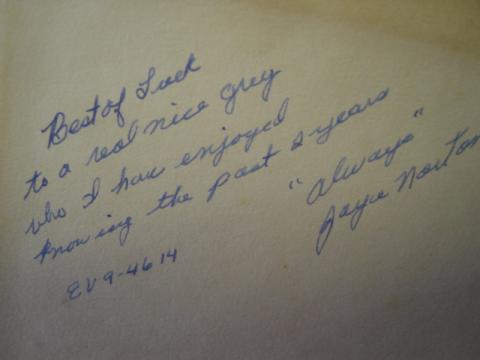 Best of Luck
to a real nice guy
who I have enjoyed
knowing the past 2 years
"always"
Jaye Norton
EV9-4614